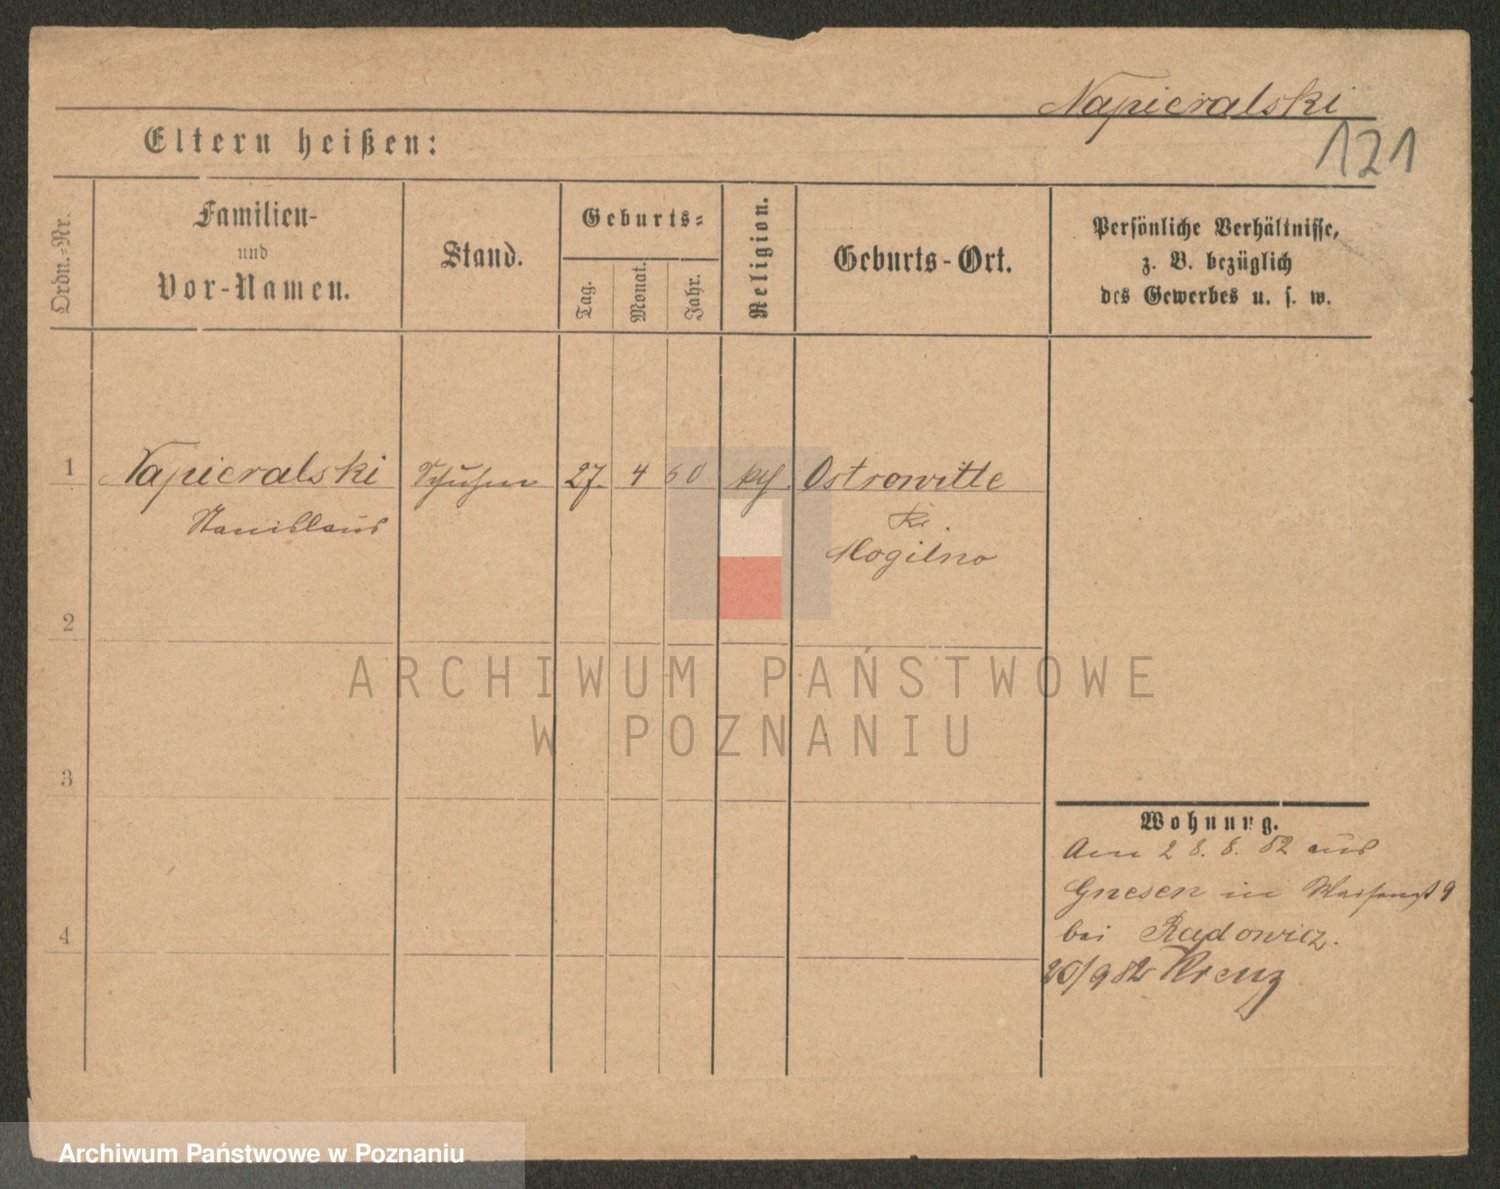 Napieralski
121
Eltern heißen:
Ordn.-Nr.
Familien-
und
Vor-Namen.
Stand.
Geburts-
Tag.
Monat.
Jahr.
Religion.
Geburts-Ort.
Persönliche Verhältnisse,
z. B. bezüglich
des Gewerbes u. s. w.
1 Napieralski 27. 4 60 kth. Ostrowitte
Stanislaus Kr.
Mogilno
2
ARCHIWUM PAŃSTWOWE
W POZNANIU
3
Wohnung.
Am 28. 8. 82 aus
Gnesen in 9
4
bei Radowicz.
20/9 82 Kreuz
Archiwum Państwowe w Poznaniu